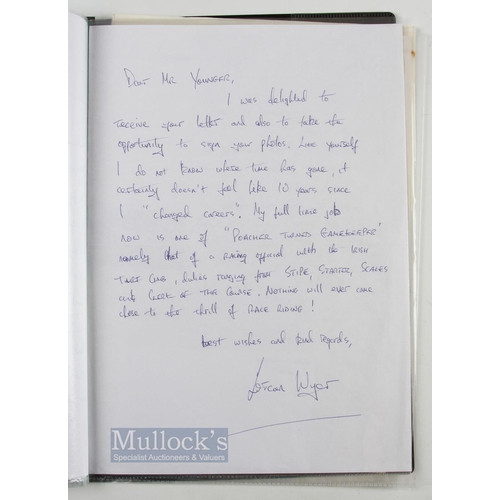 Dear Mr Younger,
I was delighted to
receive your letter and also to take the
opportunity to sign your photos. Like yourself
I do not know where time has gone, it
certainly doesn't feel like 10 years since
I "changed careers". My full time job
now is one of "Poacher turned Gamekeeper"
namely that of a racing official with the Irish
Turf Club, duties ranging from Stipe, Starter, Scales
and Clerk of the Course. Nothing will ever come
close to the thrill of RACE RIDING!
best wishes and kind regards,
Lorcan Wyer
Mullock's
Specialist Auctioneers & Valuers